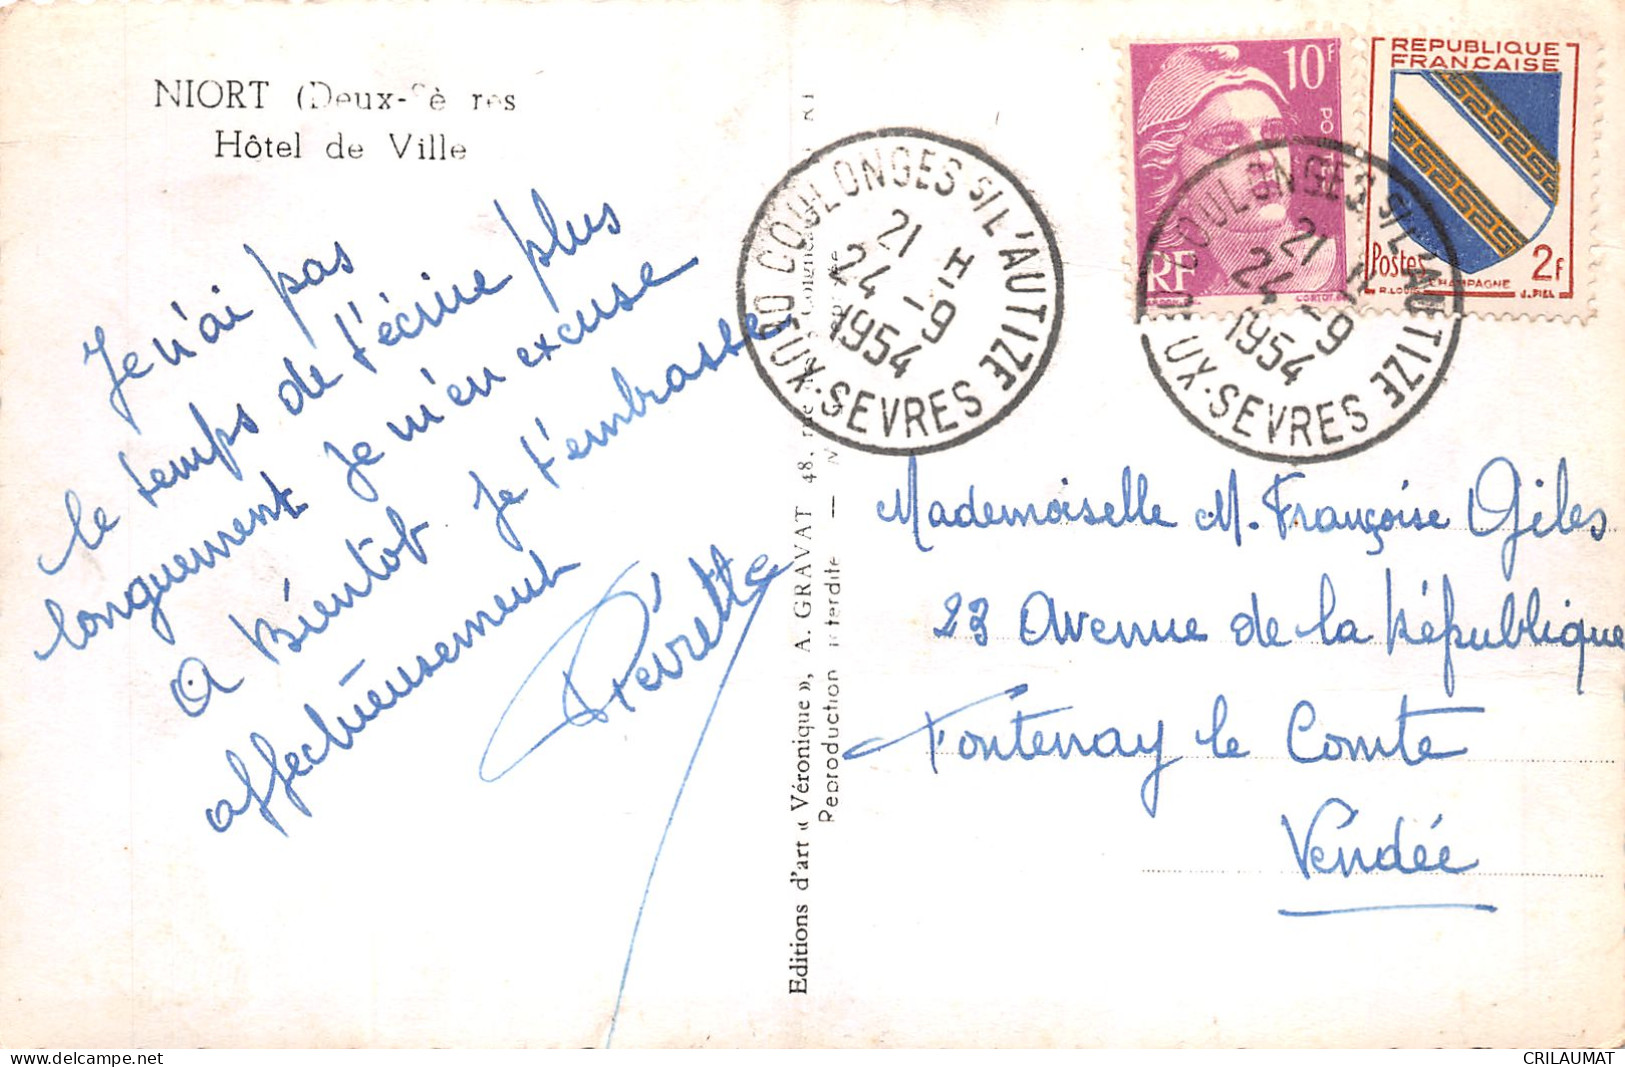 NIORT (Deux-Sè res
Hôtel de Ville
Je n'ai pas
le temps de t'écrire plus
longuement je m'en excuse
A Bientot je t'embrasse
affectueusement
Pierrette
Editions d'art « Véronique », A. GRAVAT 48,
Reproduction interdite —
COULONGES S/ L'AUTIZE
21 H
24 - 9
1954
DEUX-SEVRES
10F
RF
REPUBLIQUE
FRANCAISE
Postes 2F
CHAMPAGNE
R. LOUIS J. PIEL
COULONGES S/ L'AUTIZE
21 H
24 - 9
1954
DEUX-SEVRES
Mademoiselle M. Françoise Giles
23 Avenue de la République
Fontenay le Comte
Vendée
CRILAUMAT